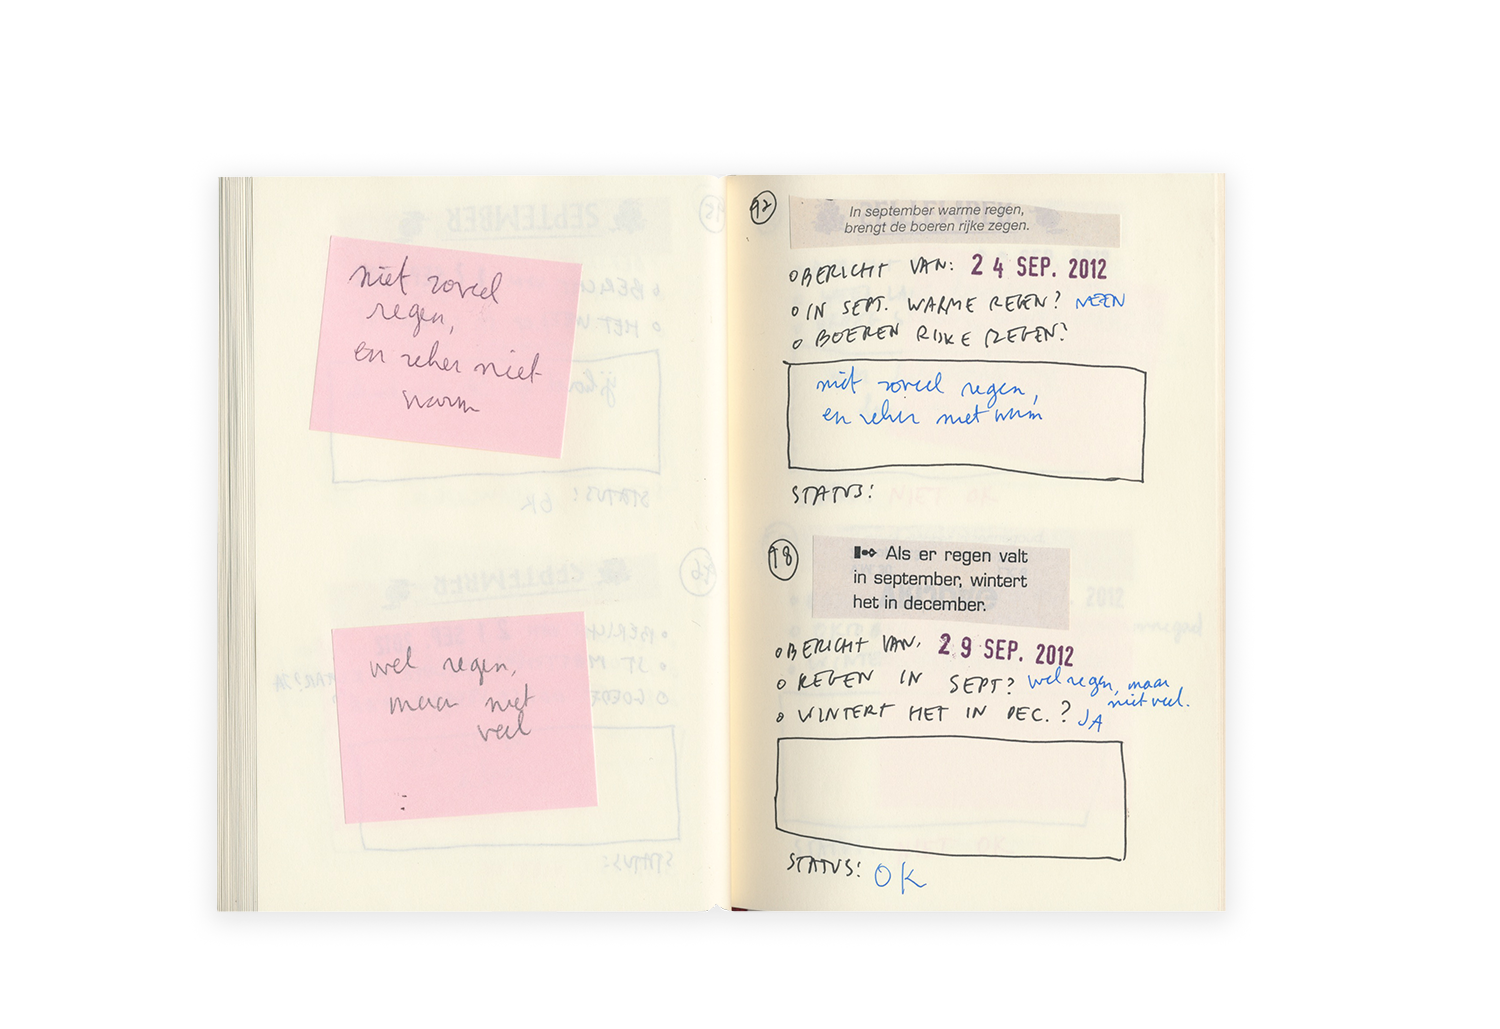 niet zoveel
regen,
en zeker niet
warm
wel regen,
maar niet
veel
92
In september warme regen,
brengt de boeren rijke zegen.
BERICHT VAN: 24 SEP. 2012
IN SEPT. WARME REGEN? NEEN
BOEREN RIJKE ZEGEN?
niet zoveel regen,
en zeker niet warm
STATUS:
98
Als er regen valt
in september, wintert
het in december.
BERICHT VAN: 29 SEP. 2012
REGEN IN SEPT? wel regen, maar
niet veel.
WINTERT HET IN DEC.? JA
STATUS: OK